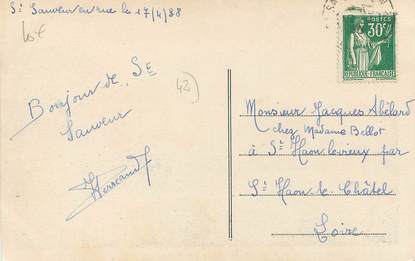 St Sauveur en rue le 17/4/38
Bonjour de St
Sauveur
42
POSTES
30c
REPUBLIQUE FRANÇAISE
Monsieur Jacques Abélard
chez Madame Bellot
à St Haon le vieux par
St Haon-le-Châtel
Loire